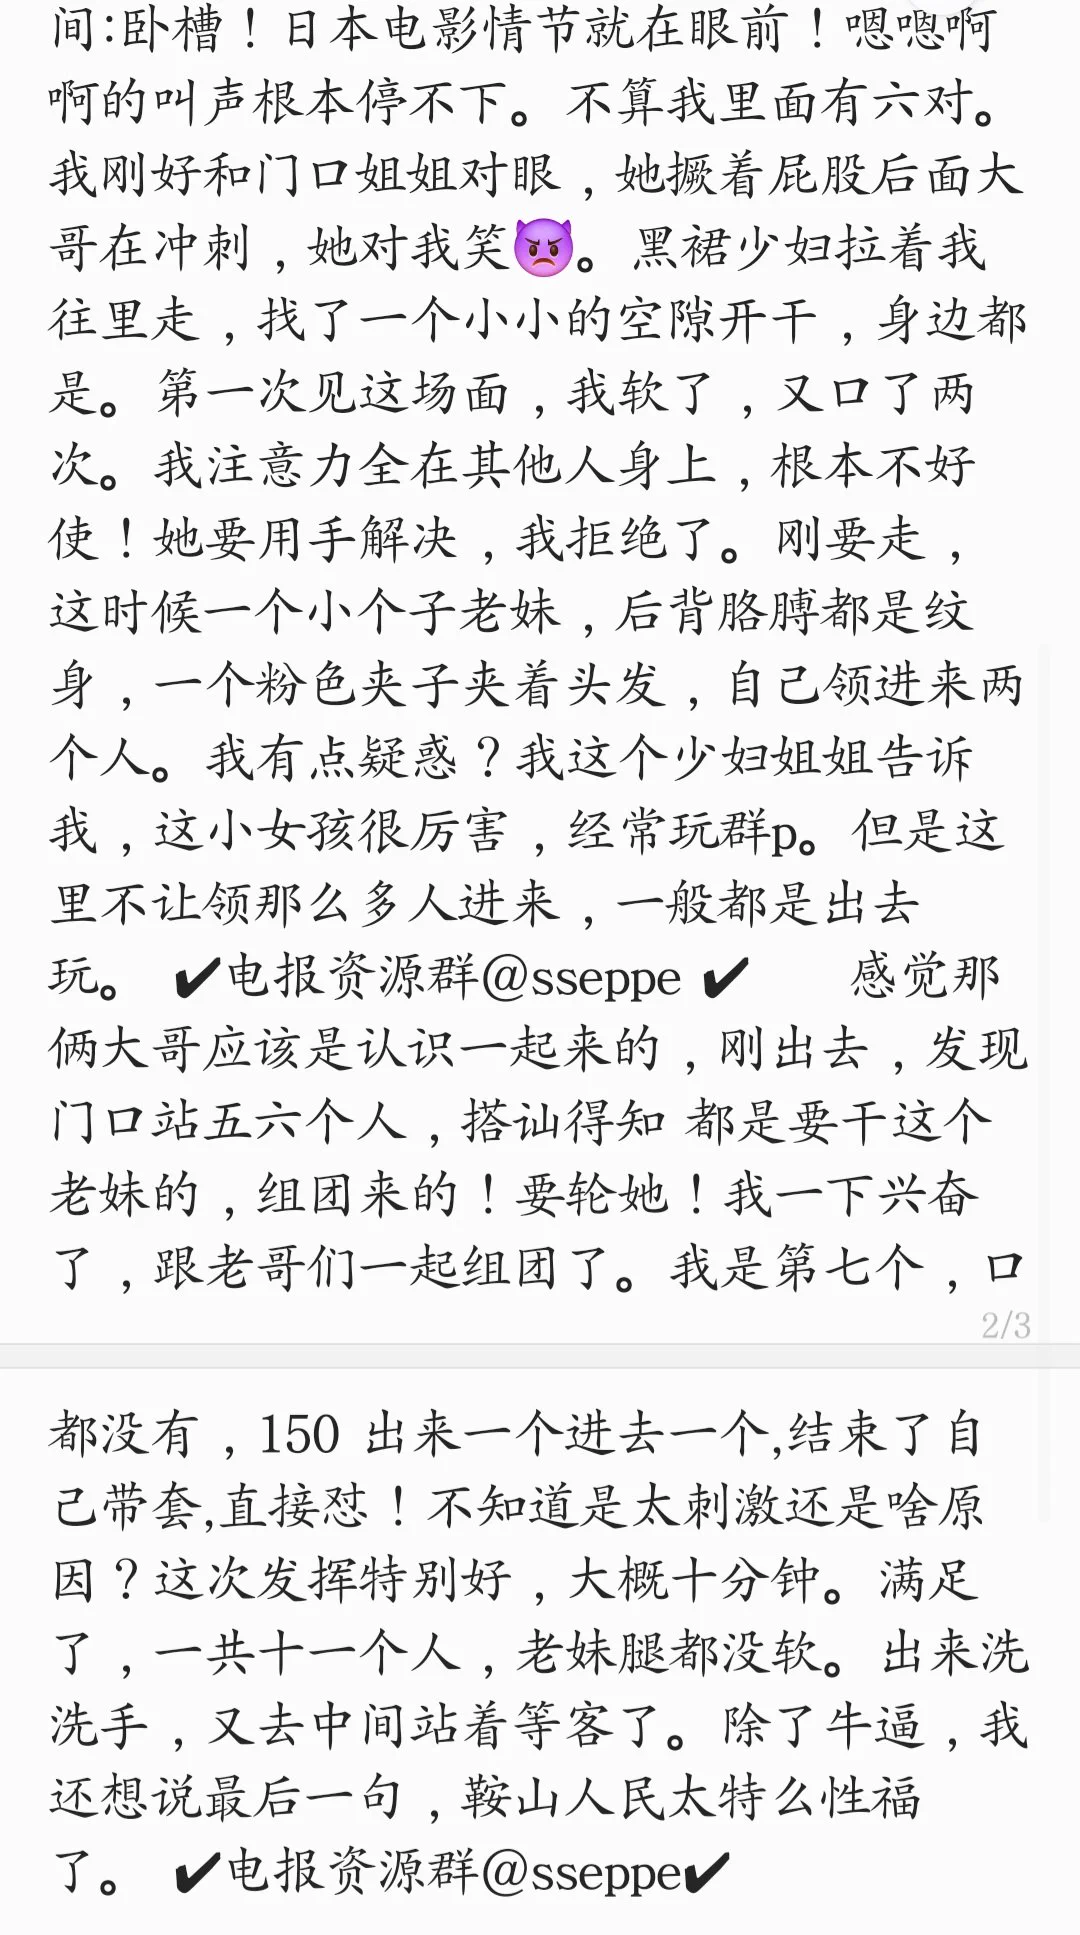 间:卧槽！日本电影情节就在眼前！嗯嗯啊
啊的叫声根本停不下。不算我里面有六对。
我刚好和门口姐姐对眼，她撅着屁股后面大
哥在冲刺，她对我笑👿。黑裙少妇拉着我
往里走，找了一个小小的空隙开干，身边都
是。第一次见这场面，我软了，又口了两
次。我注意力全在其他人身上，根本不好
使！她要用手解决，我拒绝了。刚要走，
这时候一个小个子老妹，后背胳膊都是纹
身，一个粉色夹子夹着头发，自己领进来两
个人。我有点疑惑？我这个少妇姐姐告诉
我，这小女孩很厉害，经常玩群p。但是这
里不让领那么多人进来，一般都是出去
玩。 ✔电报资源群@sseppe ✔ 感觉那
俩大哥应该是认识一起来的，刚出去，发现
门口站五六个人，搭讪得知 都是要干这个
老妹的，组团来的！要轮她！我一下兴奋
了，跟老哥们一起组团了。我是第七个，口
2/3
都没有，150 出来一个进去一个,结束了自
己带套,直接怼！不知道是太刺激还是啥原
因？这次发挥特别好，大概十分钟。满足
了，一共十一个人，老妹腿都没软。出来洗
洗手，又去中间站着等客了。除了牛逼，我
还想说最后一句，鞍山人民太特么性福
了。 ✔电报资源群@sseppe✔